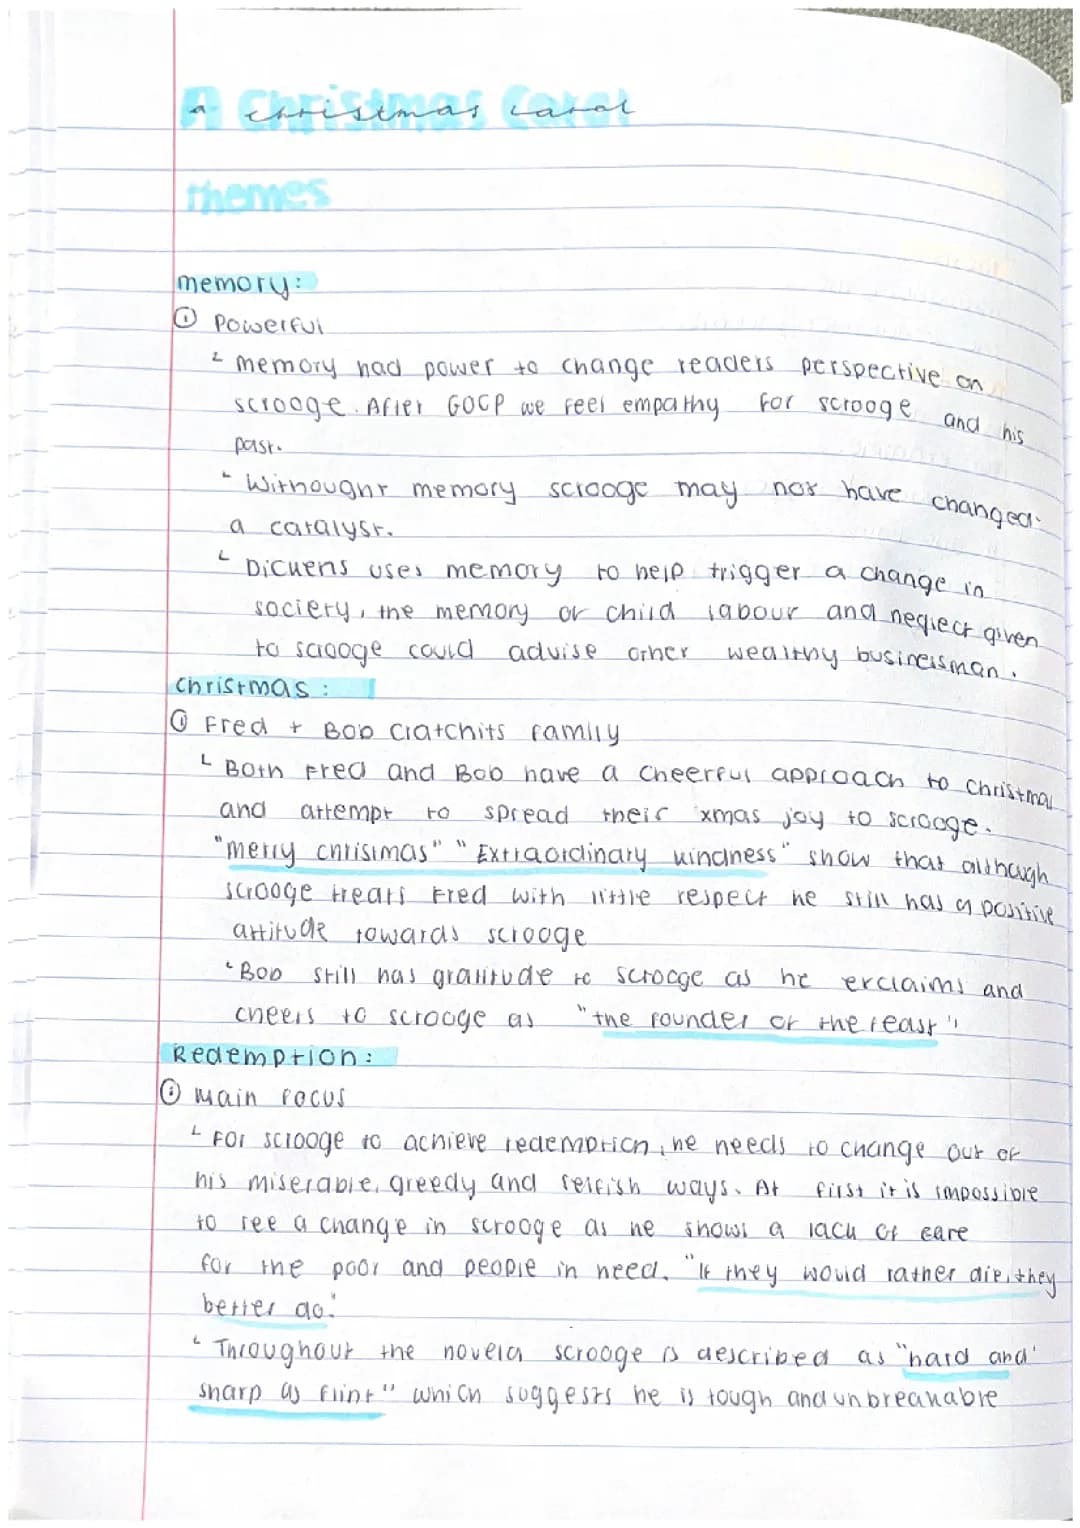 A Christmas Carol
a christmas carol
themes
memory:
① Powerful
memory had power to change readers perspective on
scrooge. After GOCP we feel empathy for scrooge and his
past.
Withought memory scrooge may not have changed.
a catalyst.
Dickens uses memory to help trigger a change in
society, the memory of child labour and neglect given
to scrooge could advise other wealthy businessman.
Christmas:
① Fred + Bob Cratchits family
Both Fred and Bob have a cheerful approach to christmas
and attempt to spread their xmas joy to scrooge.
"merry christmas" "Extraordinary kindness" show that although
scrooge treats Fred with little respect he still has a positive
attitude towards scrooge
Bob still has gratitude to scrooge as he exclaims and
cheers to scrooge as "the founder of the feast"
Redemption:
① main focus
For scrooge to achieve redemption, he needs to change out of
his miserable, greedy and selfish ways. At first it is impossible
to see a change in scrooge as he shows a lack of care
for the poor and people in need. "If they would rather die, they
better do."
Throughout the novela scrooge is described as "hard and
sharp as flint" which suggests he is tough and unbreakable